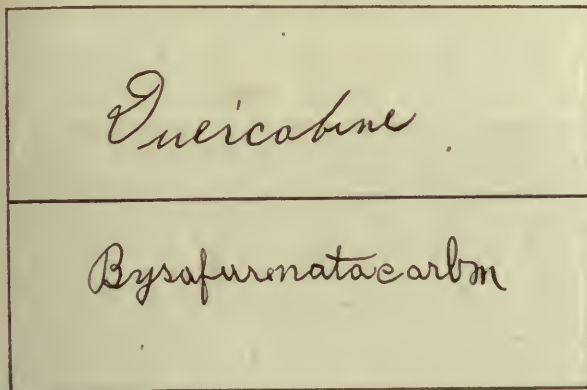 Quercobine
Bysofurmatacarbm